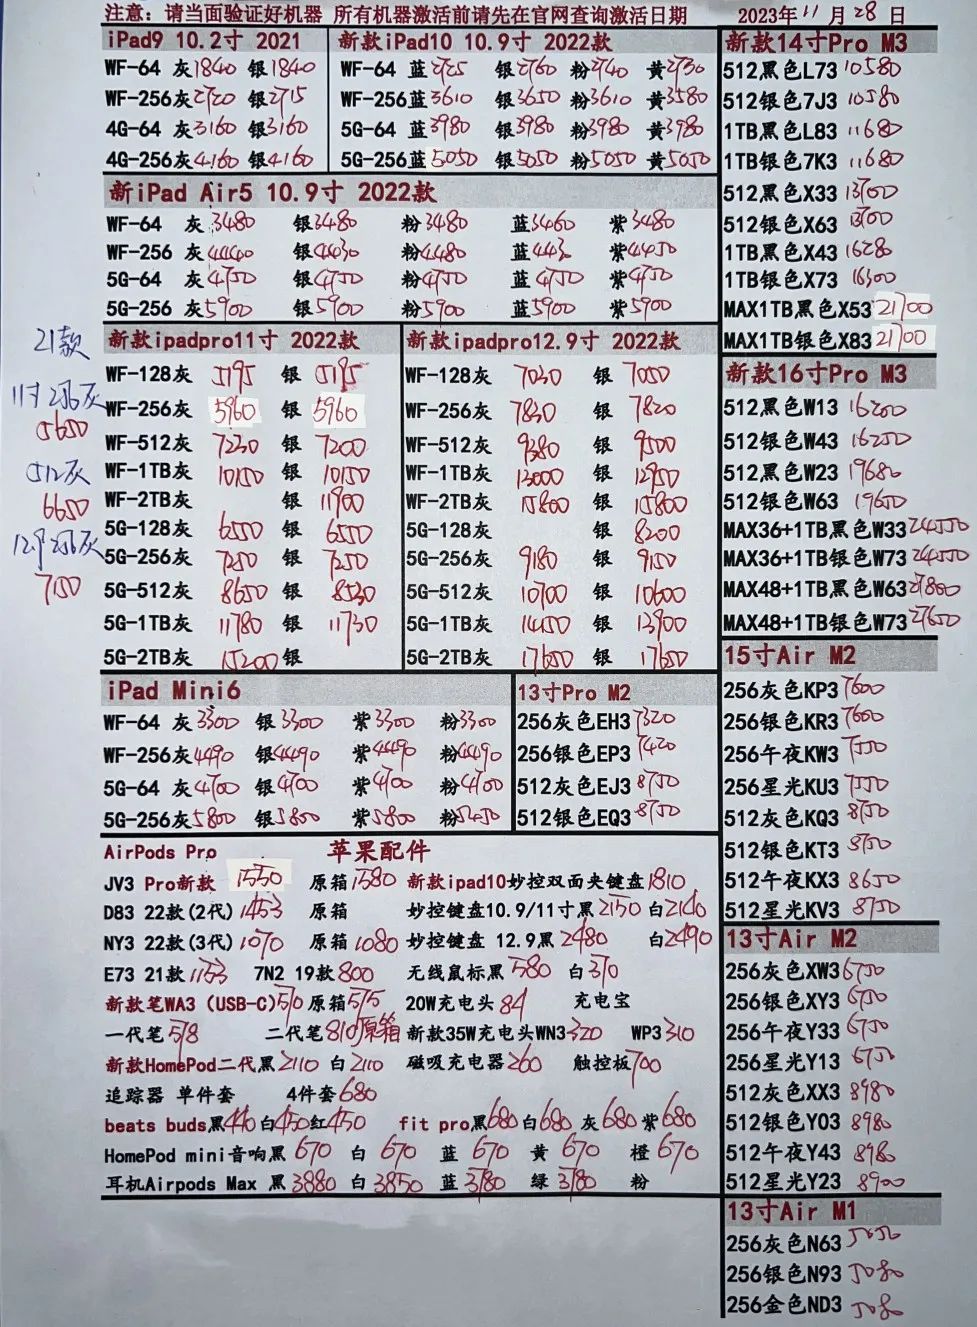 注意：请当面验证好机器 所有机器激活前请先在官网查询激活日期
2023年11月28日
iPad9 10.2寸 2021
WF-64 灰1840 银1840
WF-256灰2720 银2715
4G-64 灰3160 银3160
4G-256灰4160 银4160
新款iPad10 10.9寸 2022款
WF-64 蓝2725 银2760 粉2740 黄2730
WF-256蓝3610 银3650 粉3610 黄3580
5G-64 蓝3980 银3980 粉3980 黄3980
5G-256蓝5050 银5050 粉5050 黄5050
新iPad Air5 10.9寸 2022款
WF-64 灰3480 银3480 粉3480 蓝3460 紫3480
WF-256 灰4440 银4430 粉4480 蓝443 紫4450
5G-64 灰4750 银4750 粉4750 蓝4750 紫4750
5G-256 灰5900 银5900 粉5900 蓝5900 紫5900
21款
11寸256灰
5650
512灰
6650
12.9寸256灰
7150
新款ipadpro11寸 2022款
WF-128灰 5195 银 5195
WF-256灰 5960 银 5960
WF-512灰 7230 银 7200
WF-1TB灰 10150 银 10150
WF-2TB灰 银 11900
5G-128灰 6550 银 6550
5G-256灰 7250 银 7250
5G-512灰 8650 银 8530
5G-1TB灰 11780 银 11730
5G-2TB灰 15200 银
新款ipadpro12.9寸 2022款
WF-128灰 7030 银 7050
WF-256灰 7830 银 7820
WF-512灰 9380 银 9500
WF-1TB灰 13000 银 12950
WF-2TB灰 15800 银 15800
5G-128灰 银 8200
5G-256灰 9180 银 9150
5G-512灰 10700 银 10600
5G-1TB灰 14450 银 13900
5G-2TB灰 17650 银 17650
iPad Mini6
WF-64 灰3300 银3300 紫3300 粉3300
WF-256灰4490 银4490 紫4490 粉4490
5G-64 灰4700 银4700 紫4700 粉4700
5G-256灰5800 银5800 紫5800 粉5450
13寸Pro M2
256灰色EH3 7320
256银色EP3 7420
512灰色EJ3 8750
512银色EQ3 8750
AirPods Pro 苹果配件
JV3 Pro新款 1550 原箱1580 新款ipad10妙控双面夹键盘1810
D83 22款(2代)1453 原箱 妙控键盘10.9/11寸黑2150 白2140
NY3 22款(3代)1070 原箱1080 妙控键盘 12.9黑2480 白2490
E73 21款1153 7N2 19款800 无线鼠标黑580 白370
新款笔WA3 (USB-C)570 原箱575 20W充电头84 充电宝
一代笔578 二代笔810原箱 新款35W充电头WN3 320 WP3 310
新款HomePod二代黑2110 白2110 磁吸充电器260 触控板700
追踪器 单件套 4件套680
beats buds黑440 白450红450 fit pro黑680白680 灰680 紫680
HomePod mini音响黑670 白 670 蓝 670 黄 670 橙670
耳机Airpods Max 黑3880 白3850 蓝3780 绿3780 粉
新款14寸Pro M3
512黑色L73 10580
512银色7J3 10580
1TB黑色L83 11680
1TB银色7K3 11680
512黑色X33 13700
512银色X63 13700
1TB黑色X43 16280
1TB银色X73 16300
MAX1TB黑色X53 21700
MAX1TB银色X83 21700
新款16寸Pro M3
512黑色W13 16200
512银色W43 16250
512黑色W23 19680
512银色W63 19650
MAX36+1TB黑色W33 24550
MAX36+1TB银色W73 24550
MAX48+1TB黑色W63 27800
MAX48+1TB银色W73 27650
15寸Air M2
256灰色KP3 7600
256银色KR3 7600
256午夜KW3 7550
256星光KU3 7550
512灰色KQ3 8750
512银色KT3 8750
512午夜KX3 8650
512星光KV3 8750
13寸Air M2
256灰色XW3 6750
256银色XY3 6750
256午夜Y33 6750
256星光Y13 6750
512灰色XX3 8980
512银色Y03 8980
512午夜Y43 8980
512星光Y23 8900
13寸Air M1
256灰色N63 5050
256银色N93 5080
256金色ND3 508